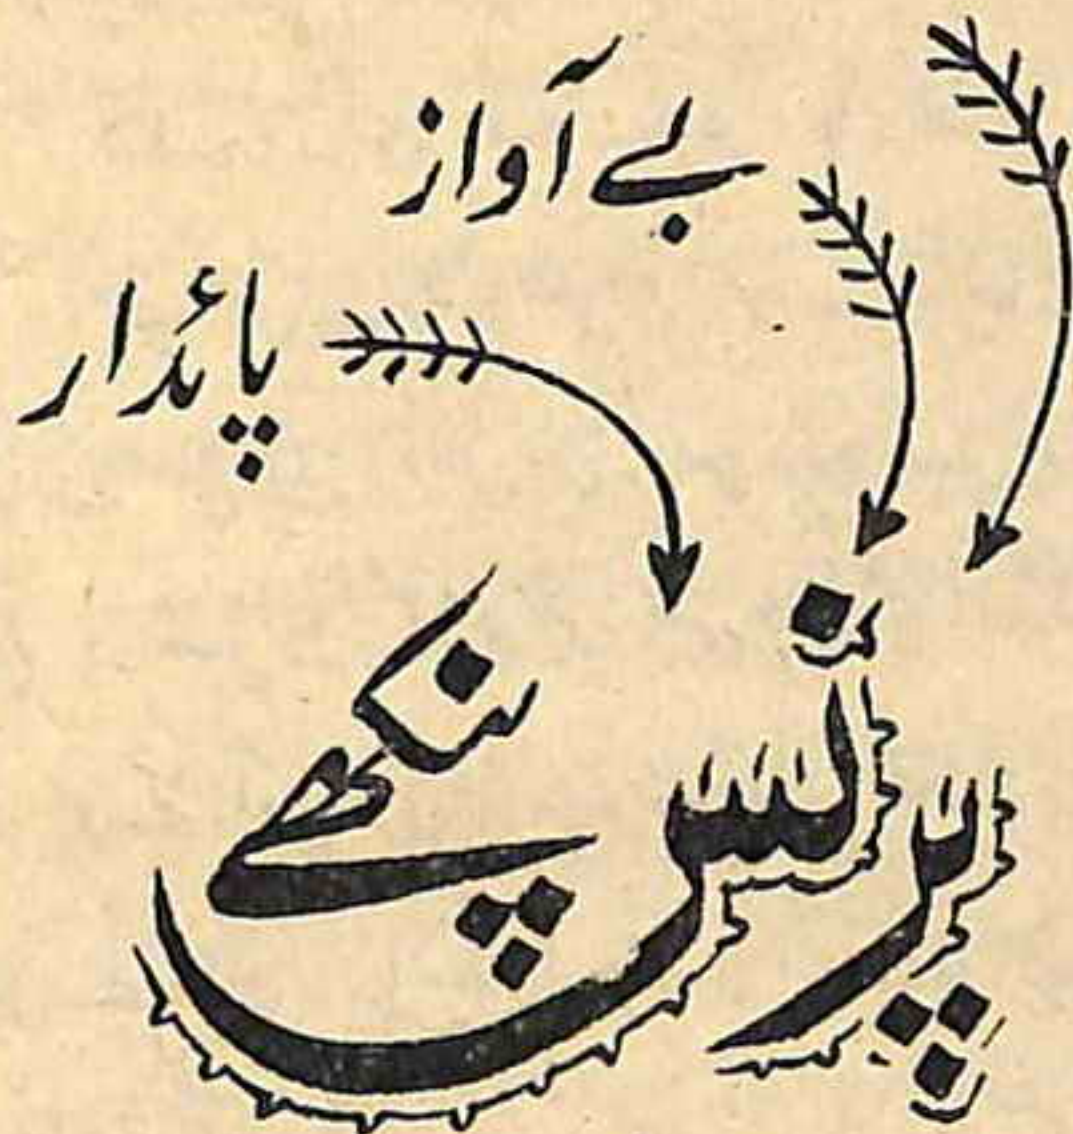 بے آواز
پائدار
پرنس پنکھے